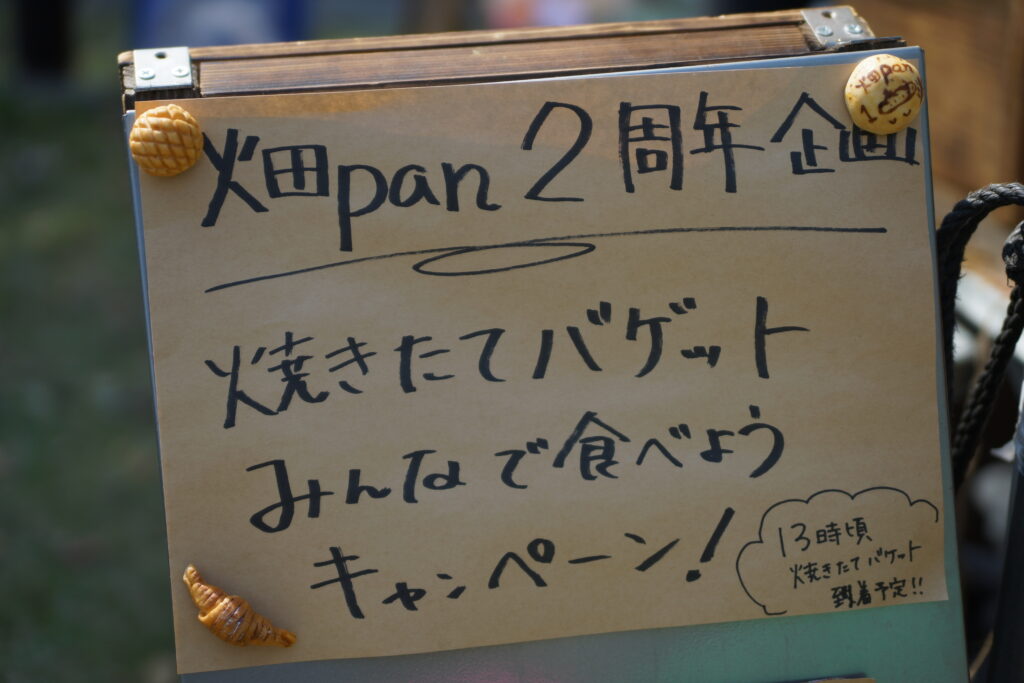 畑pan 2周年企画
焼きたてバゲット
みんなで食べよう
キャンペーン!
13時頃
焼きたてバケット
到着予定!!
畑pan
1